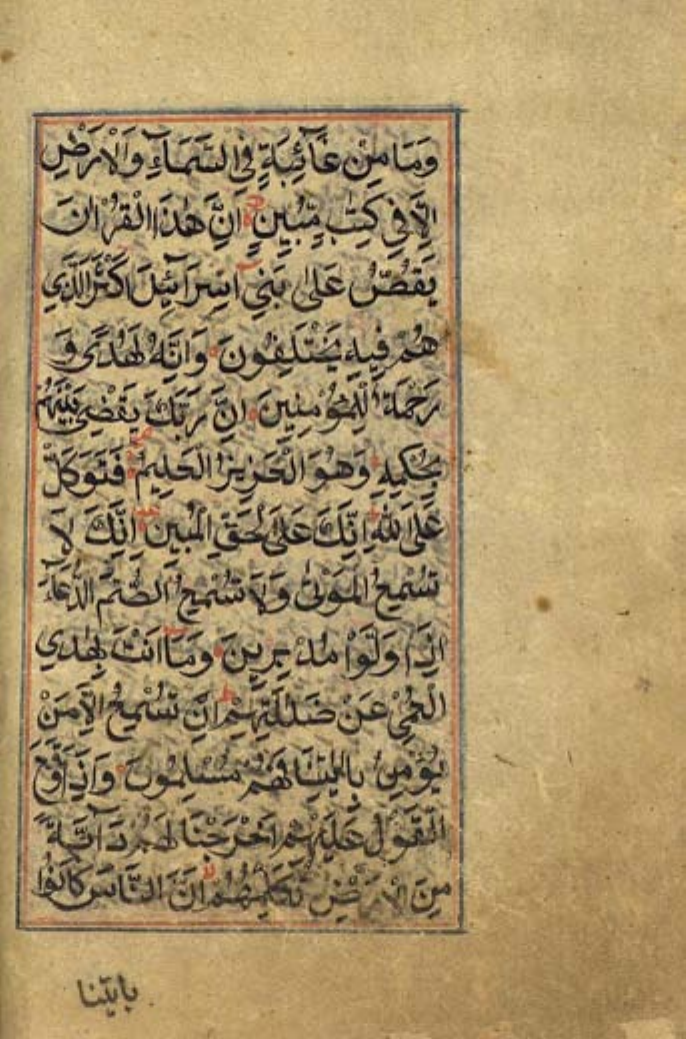 وَمَا مِنْ غَآئِبَةٍ فِي السَّمَآءِ وَالْاَرْضِ
اِلَّا فِي كِتٰبٍ مُّبِيْنٍ اِنَّ هٰذَا الْقُرْاٰنَ
يَقُصُّ عَلٰى بَنِيْٓ اِسْرَآئِيْلَ اَكْثَرَ الَّذِي
هُمْ فِيْهِ يَخْتَلِفُوْنَ وَاِنَّهٗ لَهُدًى وَّ
رَحْمَةٌ لِّلْمُؤْمِنِيْنَ اِنَّ رَبَّكَ يَقْضِيْ بَيْنَهُمْ
بِحُكْمِهٖ وَهُوَ الْعَزِيْزُ الْعَلِيْمُ فَتَوَكَّلْ
عَلَى اللّٰهِ اِنَّكَ عَلَى الْحَقِّ الْمُبِيْنِ اِنَّكَ لَا
تُسْمِعُ الْمَوْتٰى وَلَا تُسْمِعُ الصُّمَّ الدُّعَآءَ
اِذَا وَلَّوْا مُدْبِرِيْنَ وَمَآ اَنْتَ بِهٰدِي
الْعُمْيِ عَنْ ضَلٰلَتِهِمْ اِنْ تُسْمِعُ اِلَّا مَنْ
يُّؤْمِنُ بِاٰيٰتِنَا فَهُمْ مُّسْلِمُوْنَ وَاِذَا وَقَعَ
الْقَوْلُ عَلَيْهِمْ اَخْرَجْنَا لَهُمْ دَآبَّةً
مِّنَ الْاَرْضِ تُكَلِّمُهُمْ اَنَّ النَّاسَ كَانُوْا
بايتنا